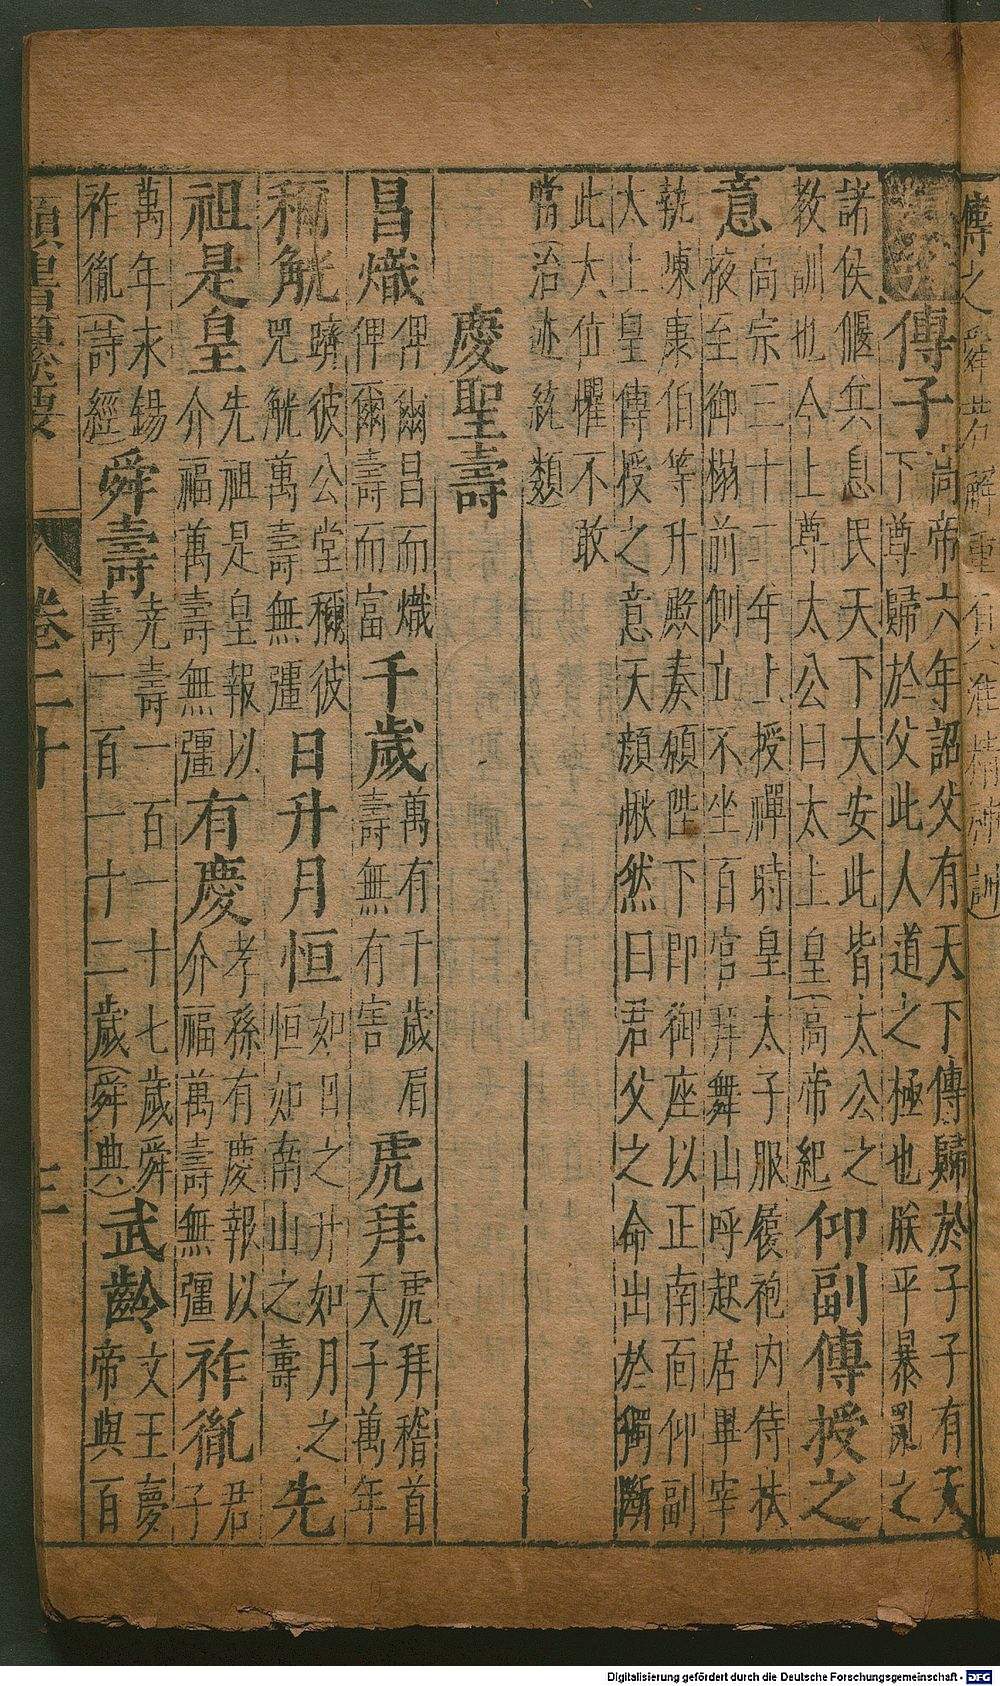 傳之舜若解重負(淮精神訓)
傳子
尚帝六年詔父有天下傳歸於子子有天
下尊歸於父此人道之極也朕平暴亂之
諸侯偃兵息民天下大安此皆太公之
教訓也今上尊太公曰太上皇(高帝紀)
仰副傳授之
意
高宗三十二年上授禪時皇太子服履袍內侍扶
掖至御榻前側立不坐百官拜舞山呼起居畢宰
執陳康伯等升殿奏願陛下即御座以正南面仰副
太上皇傳授之意天顏愀然曰君父之命出於獨斷
此大位懼不敢
當(治迹統類)
慶聖壽
昌熾
俾爾昌而熾
俾爾壽而富
千歲
萬有千歲眉
壽無有害
虎拜
虎拜稽首
天子萬年
稱觥
躋彼公堂稱彼
兕觥萬壽無疆
日升月恒
如日之升如月之
恒如南山之壽
先
祖是皇
先祖是皇報以
介福萬壽無疆
有慶
孝孫有慶報以
介福萬壽無疆
祚胤
君
子
萬年永錫
祚胤(詩經)
舜壽
堯壽一百一十七歲舜
壽一百一十二歲(舜典)
武齡
文王夢
帝與百
類書纂要
卷二十
三
Digitalisierung gefördert durch die Deutsche Forschungsgemeinschaft - DFG